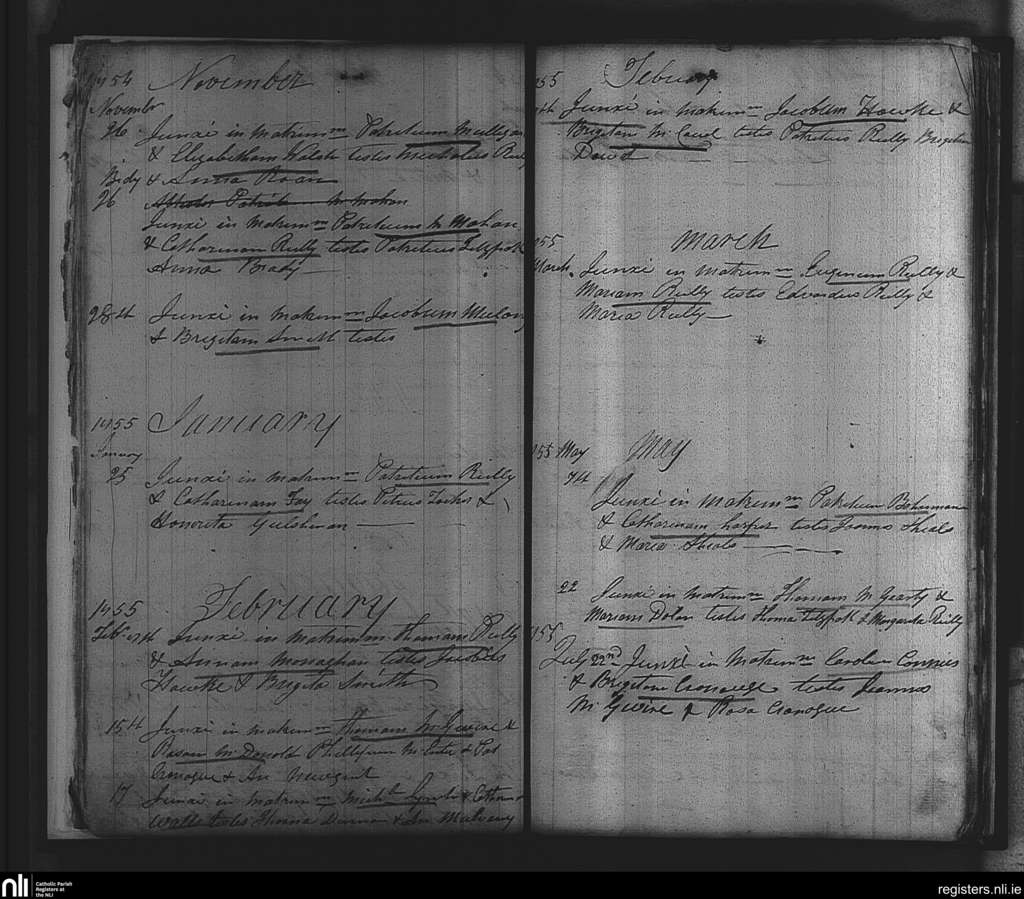 1854 November
November
26 Junxi in matrimm Patritium Mulligan
& Elizabetham Walsh testes Micholeus
Bidy & Anna Roan
26 Patrick McMahon
Junxi in matrimm Patritium McMahon
& Catharinam Reilly testes Patritius Fitzpatk
Anna Brady
28th Junxi in matrimm Jacobum
& Brigitam Smith testes
1855 January
January
25 Junxi in matrimm Patritium Reilly
& Catharinam Fay testes Petrus &
Honoreta
1855 February
Feb. Junxi in matrimm Thomam Reilly
& Annam Monaghan testes Jacobus
Hawke & Brigita Smith
15th Junxi in matrimm Thomam McGwire &
Rosam McDonold Phillipum & Pat
Cronogue & An Newgent
17 Junxi in matrimm Michl Lynch & Catharin
Walls testes Thoma & An Mulvany
55 February
th Junxi in matrimm Jacobum Hawke &
Brigitam McCawl testes Patritius Reilly Brigitam
Dowd
55 March
March Junxi in matrimm Eugenium Reilly &
Mariam Reilly testes Edvardus Reilly &
Maria Reilly
55 May May
7th
Junxi in matrimm Patritium
& Catharinam testes Sheals
& Maria Sheals
22 Junxi in matrimm Thomam McGearty &
Mariam Dolan testes Thoma Fitzpatk & Margareta Reilly
155
July 22nd Junxi in matrimm
& Brigitam Cronougue testes Joannes
McGwire & Rosa Cronogue
nli Catholic Parish
Registers at
the NLI
registers.nli.ie